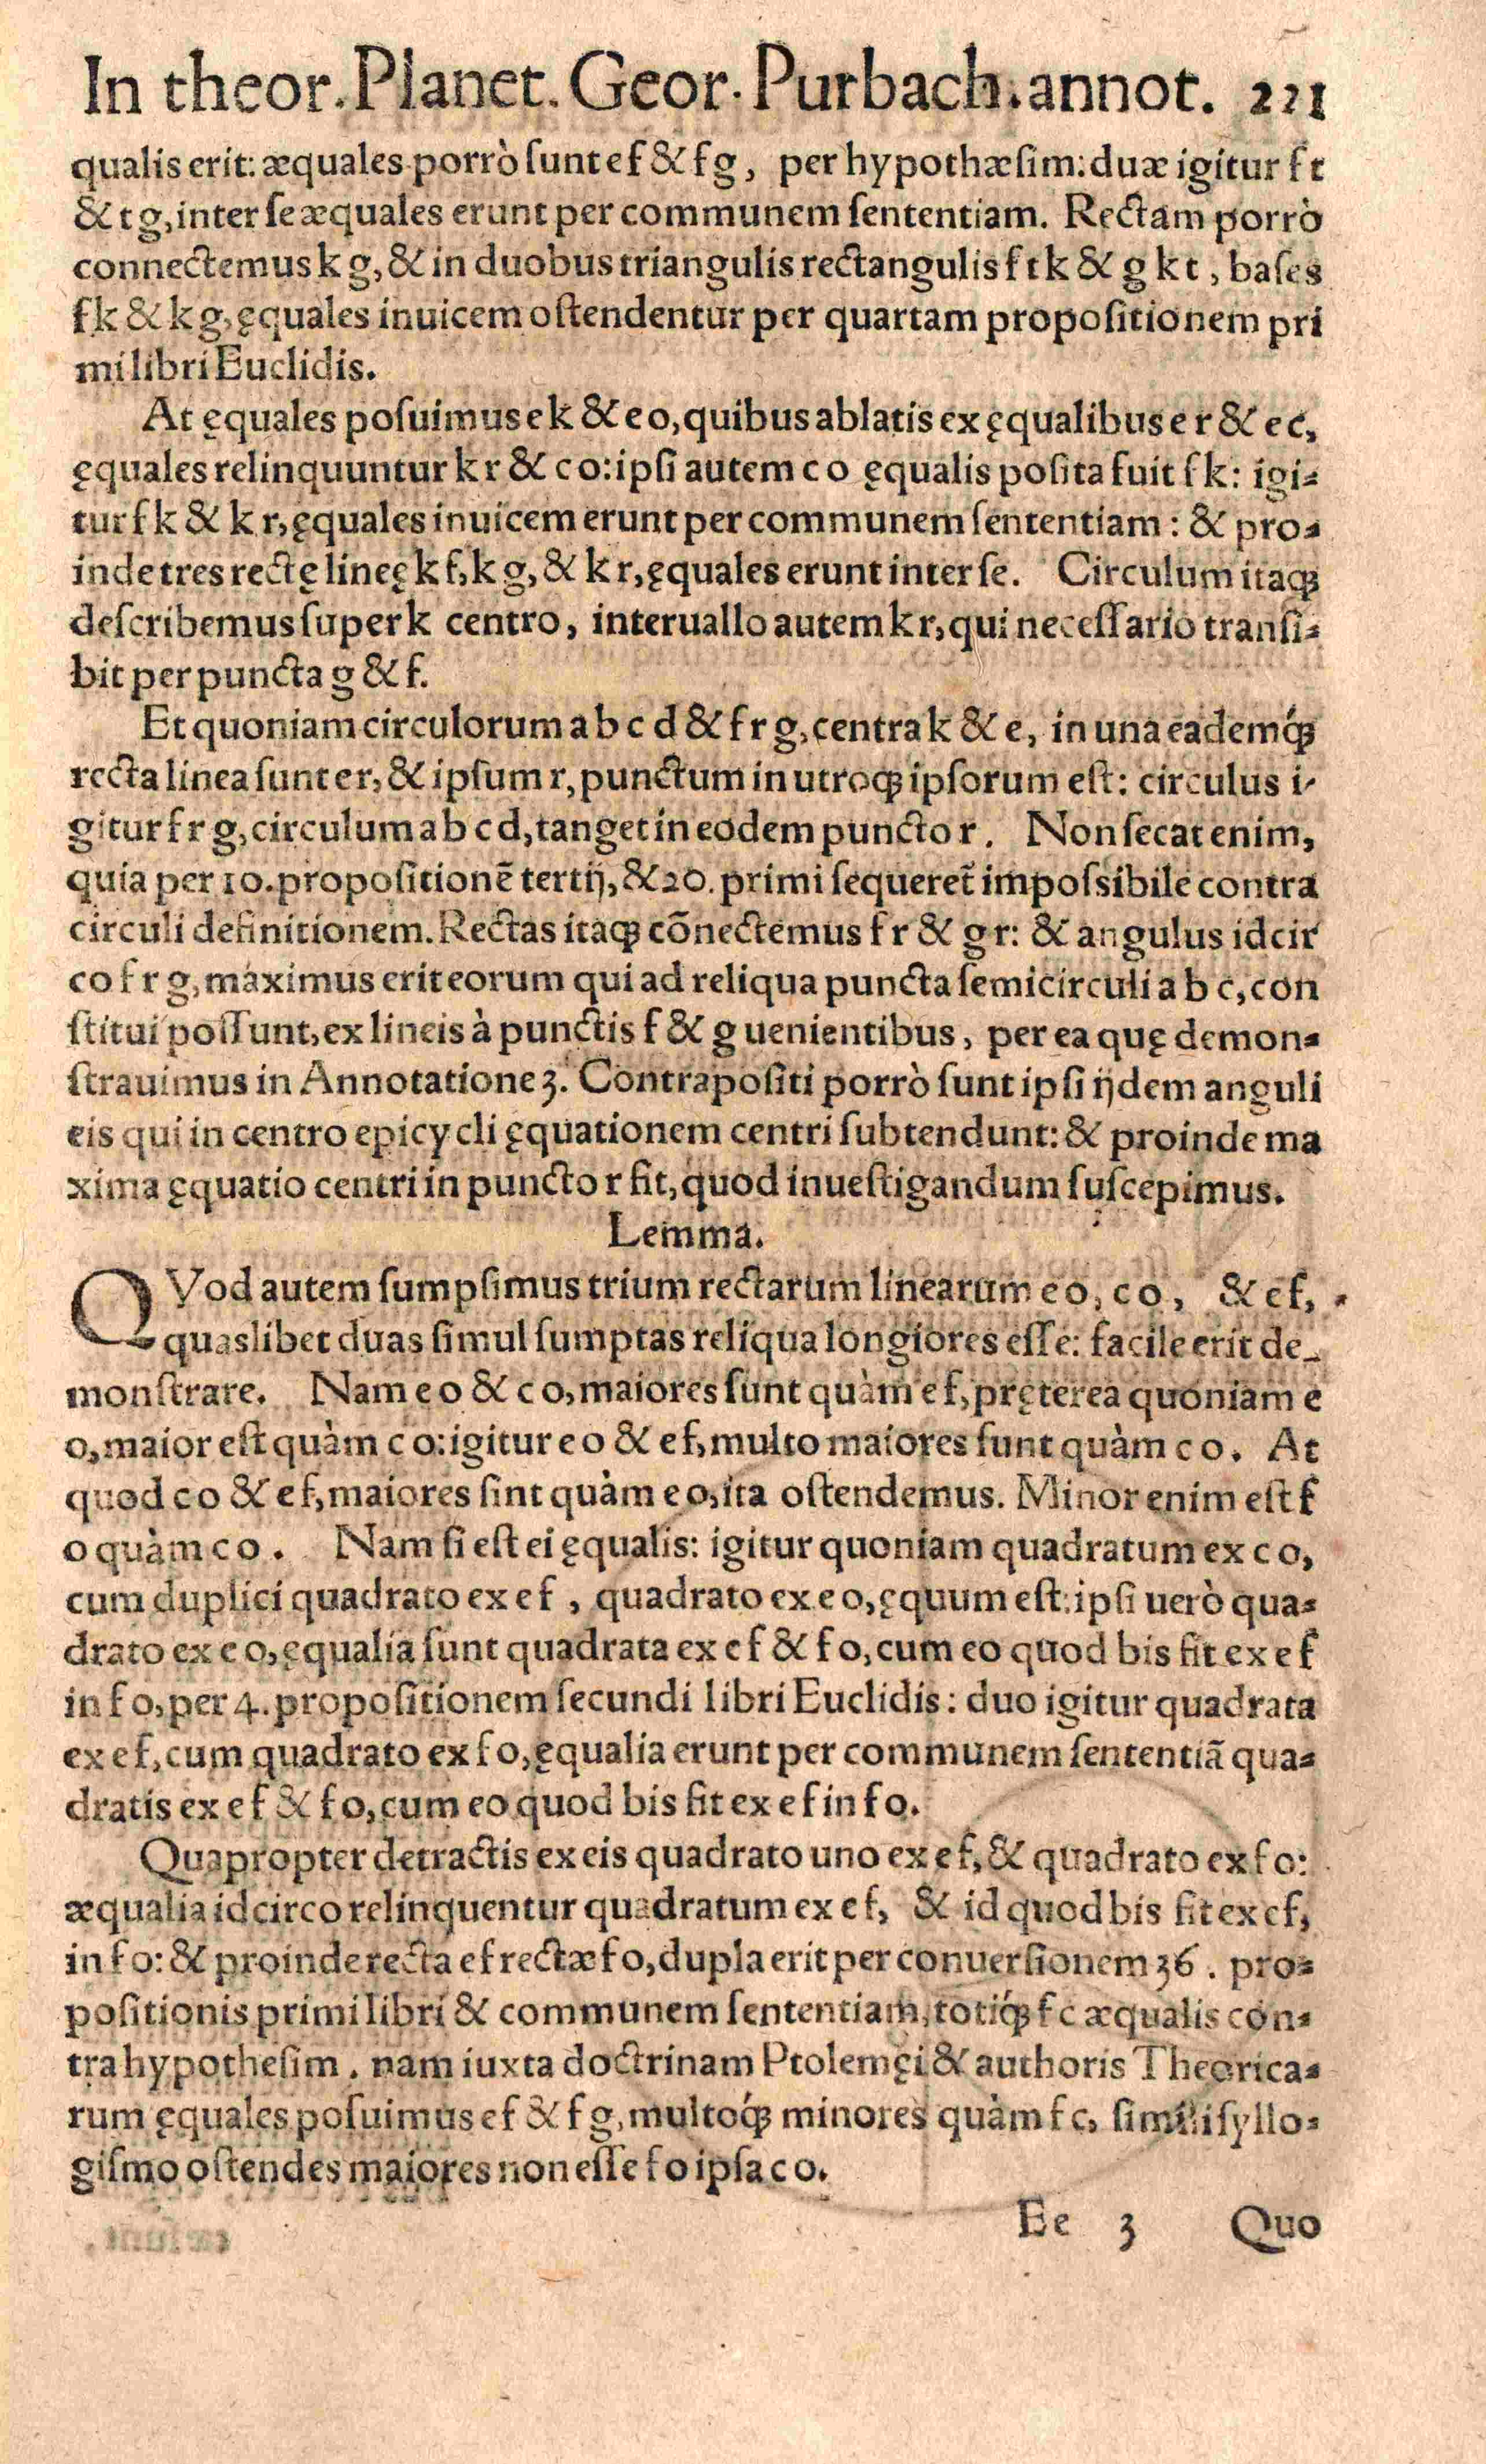 In theor. Planet. Geor. Purbach. annot. 221
qualis erit: æquales porrò sunt e f & f g, per hypothæsim: duæ igitur f t
& t g, inter se æquales erunt per communem sententiam. Rectam porrò
connectemus k g, & in duobus triangulis rectangulis f t k & g k t, bases
f k & k g, ęquales inuicem ostendentur per quartam propositionem pri
mi libri Euclidis.
At ęquales posuimus e k & e o, quibus ablatis ex ęqualibus e r & e c,
ęquales relinquuntur k r & c o: ipsi autem c o ęqualis posita fuit f k: igi-
tur f k & k r, ęquales inuicem erunt per communem sententiam: & pro-
inde tres rectę lineę k f, k g, & k r, ęquales erunt inter se. Circulum itaq̃
describemus super k centro, interuallo autem k r, qui necessario transi-
bit per puncta g & f.
Et quoniam circulorum a b c d & f r g, centra k & e, in una eademq́;
recta linea sunt e r, & ipsum r, punctum in utroq; ipsorum est: circulus i-
gitur f r g, circulum a b c d, tanget in eodem puncto r. Non secat enim,
quia per 10. propositionẽ tertij, & 20. primi sequeret̃ impossibile contra
circuli definitionem. Rectas itaq; cõnectemus f r & g r: & angulus idcir
co f r g, maximus erit eorum qui ad reliqua puncta semicirculi a b c, con
stitui possunt, ex lineis à punctis f & g uenientibus, per ea quę demon-
strauimus in Annotatione 3. Contrapositi porrò sunt ipsi ijdem anguli
eis qui in centro epicycli ęquationem centri subtendunt: & proinde ma
xima ęquatio centri in puncto r fit, quod inuestigandum suscepimus.
Lemma.
QVod autem sumpsimus trium rectarum linearum e o, c o, & e f,
quaslibet duas simul sumptas reliqua longiores esse: facile erit de-
monstrare. Nam e o & c o, maiores sunt quàm e f, pręterea quoniam e
o, maior est quàm c o: igitur e o & e f, multo maiores sunt quàm c o. At
quod c o & e f, maiores sint quàm e o, ita ostendemus. Minor enim est f
o quàm c o. Nam si est ei ęqualis: igitur quoniam quadratum ex c o,
cum duplici quadrato ex e f, quadrato ex e o, ęquum est: ipsi uerò qua-
drato ex e o, ęqualia sunt quadrata ex e f & f o, cum eo quod bis fit ex e f
in f o, per 4. propositionem secundi libri Euclidis: duo igitur quadrata
ex e f, cum quadrato ex f o, ęqualia erunt per communem sententiã qua-
dratis ex e f & f o, cum eo quod bis fit ex e f in f o.
Quapropter detractis ex eis quadrato uno ex e f, & quadrato ex f o:
æqualia idcirco relinquentur quadratum ex e f, & id quod bis fit ex e f,
in f o: & proinde recta e f rectæ f o, dupla erit per conuersionem 36. pro-
positionis primi libri & communem sententiam, totiq́; f c æqualis con-
tra hypothesim. nam iuxta doctrinam Ptolemęi & authoris Theorica-
rum ęquales posuimus e f & f g, multoq́; minores quàm f c, simili syllo-
gismo ostendes maiores non esse f o ipsa c o.
Ee 3 Quo